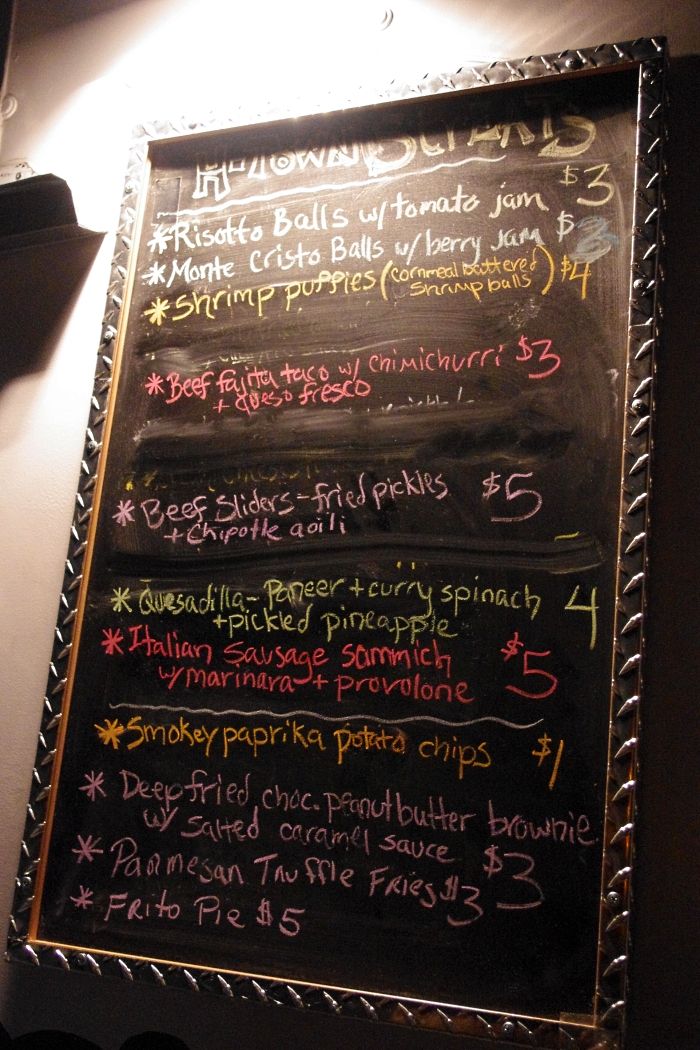 H-TOWN STREATS
*Risotto Balls w/ tomato jam $3
*Monte Cristo Balls w/ berry jam $3
*Shrimp puppies (cornmeal battered $4
shrimp balls)
*Beef fajita taco w/ chimichurri $3
+ queso fresco
*Beef Sliders - fried pickles $5
+ Chipotle aoili
*Quesadilla - Paneer + curry spinach 4
+ pickled pineapple
*Italian Sausage sammich $5
w/ marinara + provolone
*Smokey paprika potato chips $1
* Deep fried choc. peanut butter brownie
w/ salted caramel sauce $3
* Parmesan Truffle Fries $3
* Frito Pie $5